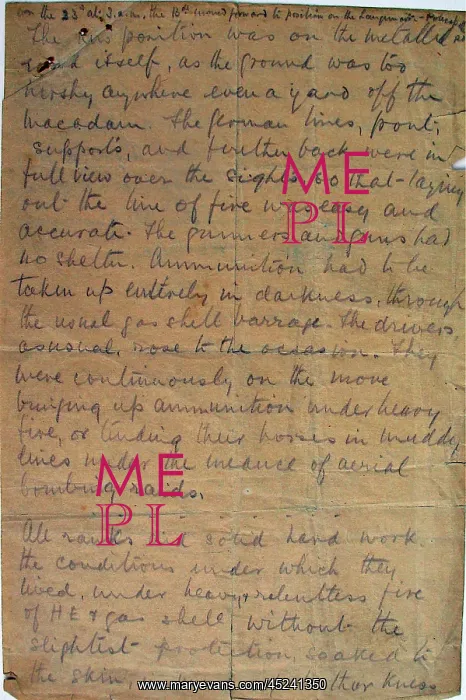 on the 23rd at 3.a.m., the 13th moved forward to position on the Langemarck -
The position was on the metalled
road itself, as the ground was too
marshy anywhere even a yard off the
macadam. The German lines, front,
supports, and further back were in
full view over the sights so that laying
out the line of fire was easy and
accurate. The gunners and guns had
no shelter. Ammunition had to be
taken up entirely in darkness, through
the usual gas shell barrage. The drivers
as usual, rose to the occasion. They
were continuously on the move
bringing up ammunition under heavy
fire, or tending their horses in muddy
lines under the menace of aerial
bombing raids.
All ranks did solid hard work
the conditions under which they
lived, under heavy & relentless fire
of HE & gas shell without the
slightest protection soaked to
the skin, their knees
ME
PL
ME
PL
www.maryevans.com/45241350